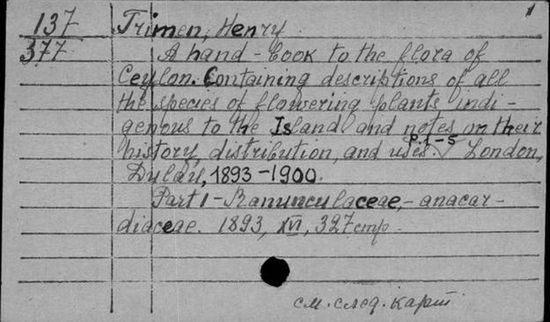 137 Trimen, Henry 1
377 A hand-book to the flora of
Ceylon. Containing descriptions of all
the species of flowering plants indi-
genous to the Island and notes on their
history, distribution, and uses. P. 1-5 London,
Dulau, 1893-1900.
Part 1 - Ranunculaceae, - anacar-
diaceae. 1893, XVI, 327 стр.
см. след. карт